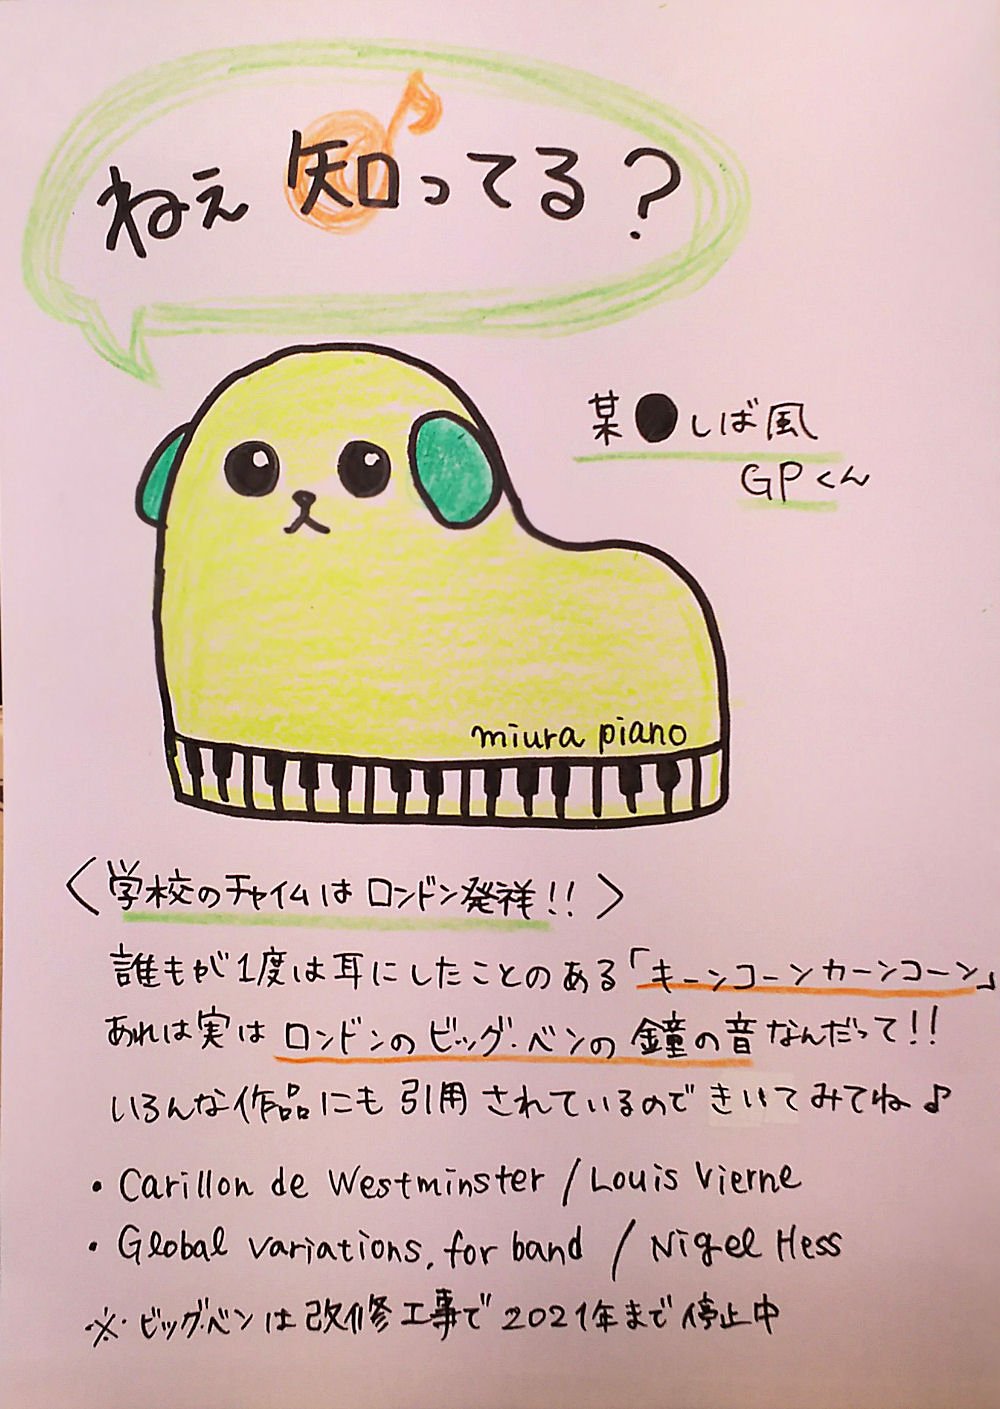 ねぇ知ってる？
某●しば風
GPくん
miura piano
〈学校のチャイムはロンドン発祥!!〉
誰もが1度は耳にしたことのある「キーンコーンカーンコーン」
あれは実はロンドンのビッグ・ベンの鐘の音なんだって!!
いろんな作品にも引用されているのできいてみてね♪
・Carillon de Westminster / Louis Vierne
・Global variations, for band / Nigel Hess
※ビッグ・ベンは改修工事で2021年まで停止中